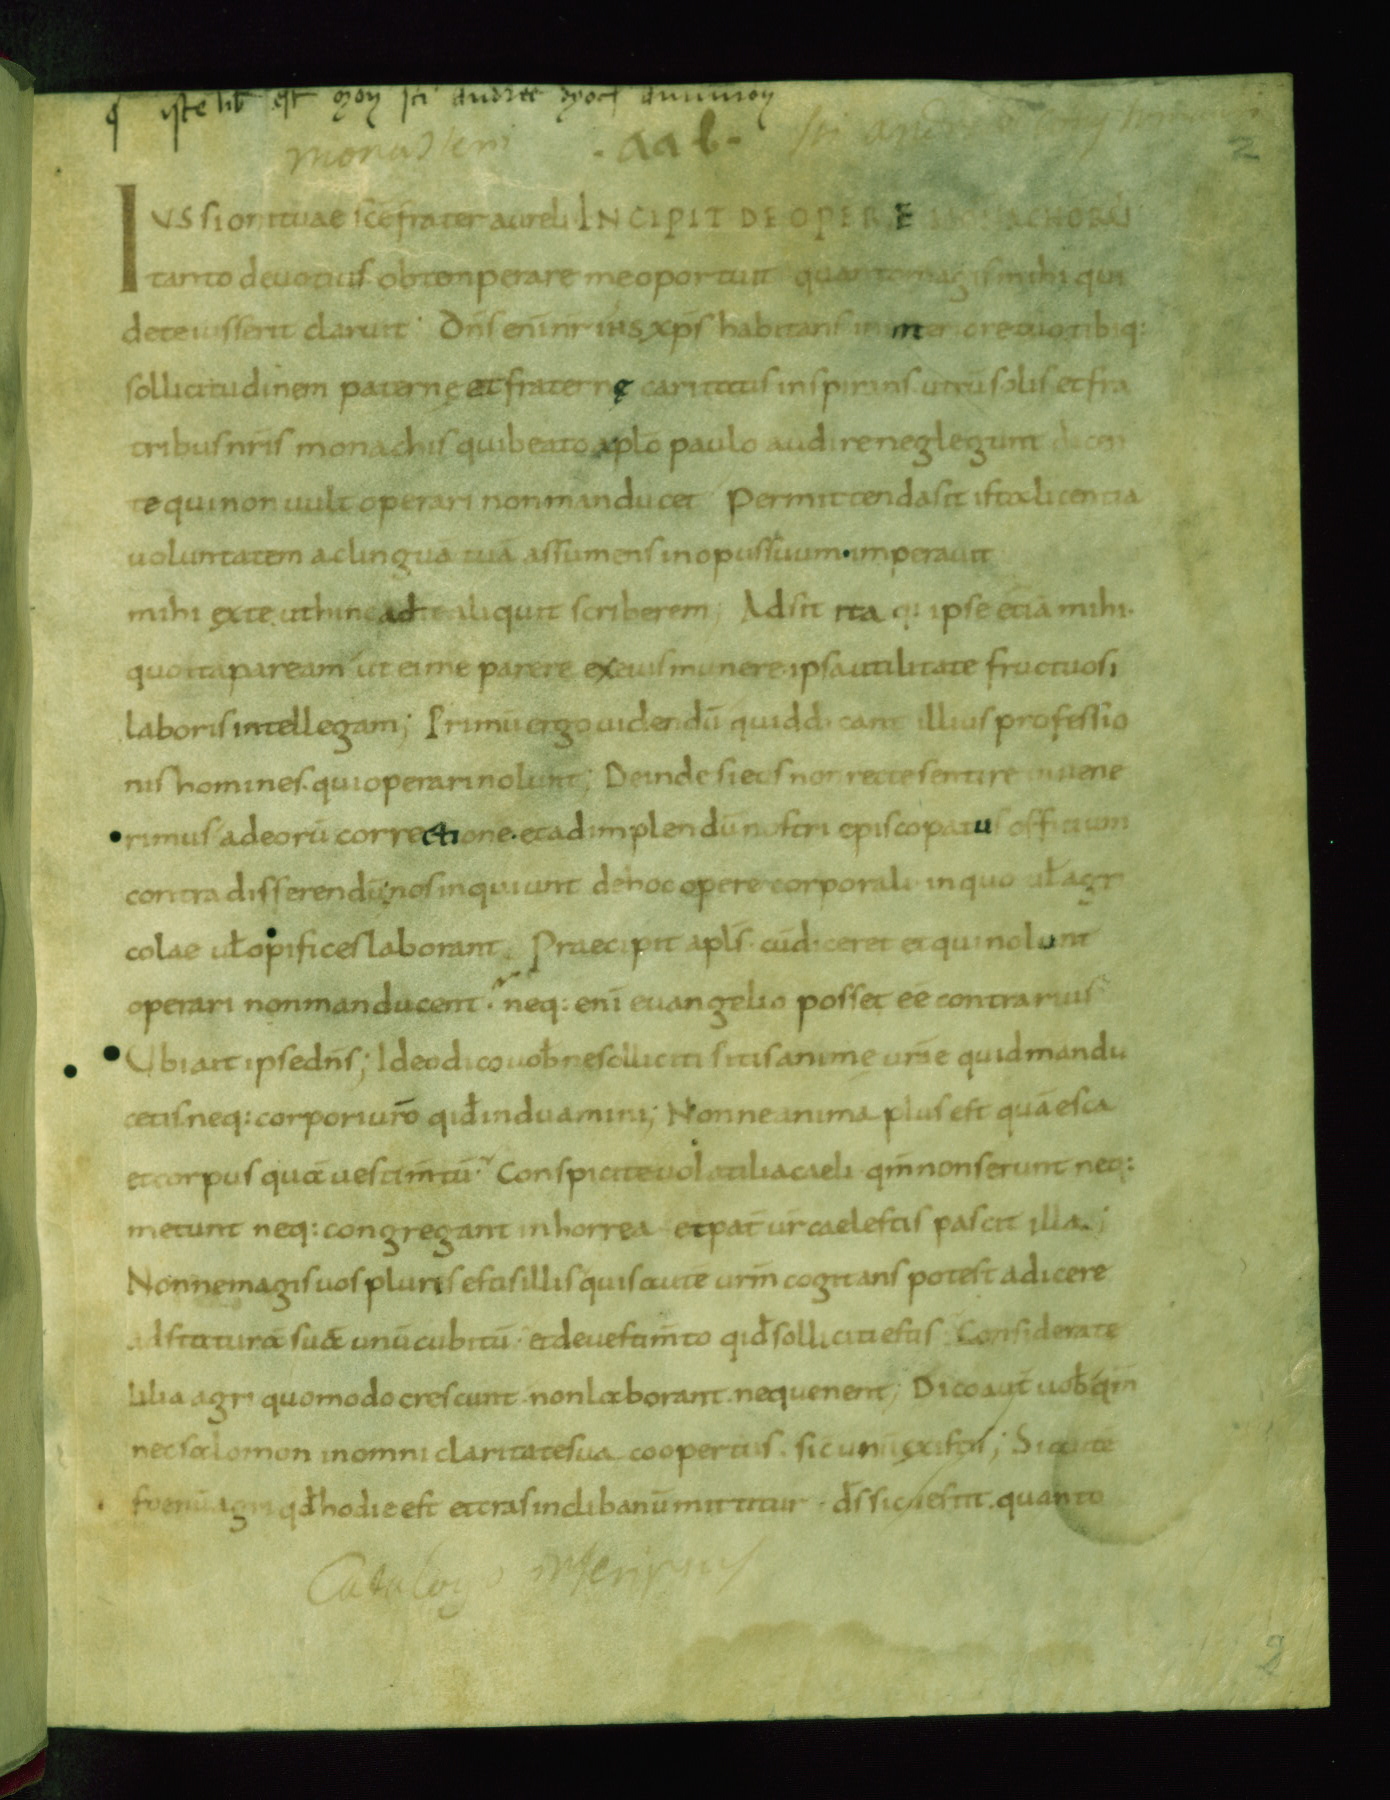 iste lib est mon sci andree
monasterii - a a b - sci andree
2
IUssionituae sce frater aureli INCIPIT DE OPERE MONACHORU
tanto deuotius obtemperare me oportuit quanto magis mihi qui
de te iusserit claruit Dns enim nr ihs xps habitans in
sollicitudinem paternę et fraternę caritatis inspirans utru solis et fra
tribus nris monachis qui beato aplo paulo audire neglegunt dicen
te qui non uult operari non manducet Permittenda sit ista licentia
uoluntatem ac linguā tuā assumens in opus suum imperauit
mihi ex te ut hinc ad te aliquit scriberem; Adsit ita q: ipse etiā mihi
quo ita paream ut ei me parere ex eius munere ipsa utilitate fructuosi
laboris intellegam; Primū ergo uidendū quid dicant illius professio
nis homines qui operari nolunt; Deinde si eos non recte sentire inuene
rimus ad eorū correctione et ad implendū nostri episcopatus officium
contra differendū; nos inquiunt de hoc opere corporali in quo ut agri
colae ut opifices laborant. Praecipit apls cū diceret et qui nolunt
operari non manducent. neq: eni euangelio posset eē contrarius
Ubi ait ipse dns; Ideo dico uob ne solliciti sitis anime urē quid mandu
cetis neq: corpori uro qid induamini; Nonne anima plus est quā esca
et corpus quā uestimtū. Conspicite uolatilia caeli qm non serunt neq:
metunt neq: congregant in horrea et pat ur caelestis pascit illa;
Nonne magis uos pluris estis illis quis aute urm cogitans potest adicere
ad staturā suā unū cubitū et de uestimto qid solliciti estis Considerate
lilia agri quomodo crescunt non laborant neque nent; Dico aut uob qm
nec salomon in omni claritate sua coopertus sic unū ex istis; Si aute
foenū agri qd hodie est et cras in clibanū mittitur ds sic uestit quanto
Catalogo inscripsus
2